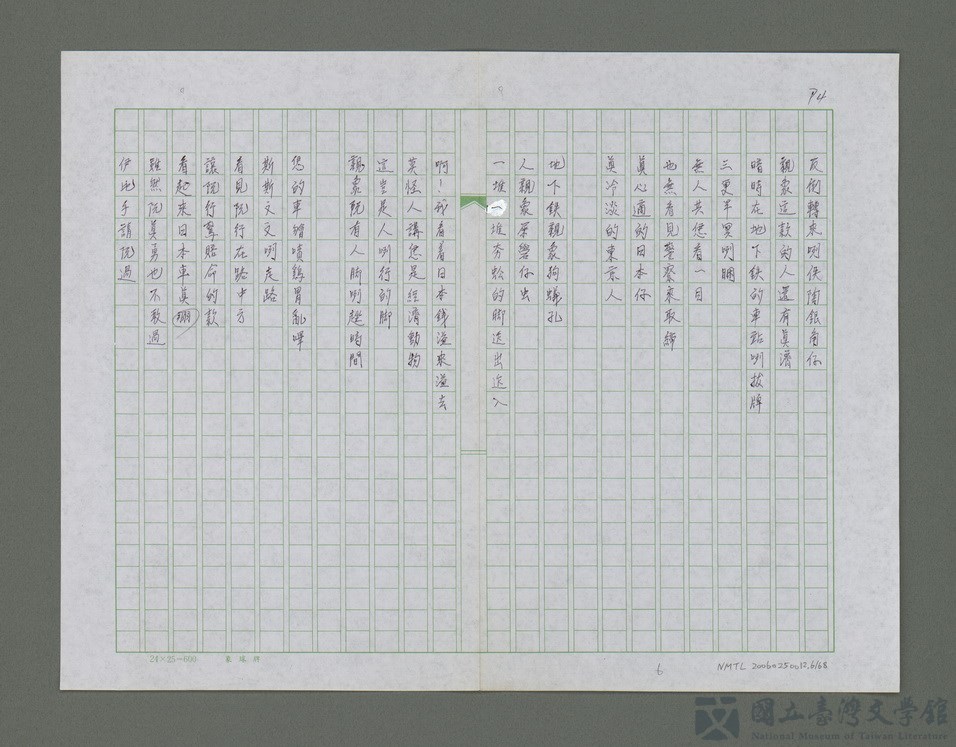 P4
反倒轉來咧佚陶銀角仔
親象這款的人還有真濟
暗時在地下鉄的車站咧拔牌
三更半冥咧睏
無人共伊看一目
也無看見警察來取締
真心適的日本仔
真冷淡的東京人
地下鉄親象狗蟻孔
人親象屎礐仔虫
一堆一堆夯蚣的脚迒出迒入
啊！我看着日本錢溢來溢去
莫怪人講您是經濟動物
這豈是人咧行的脚
親象阮有人脚咧趕時間
您的車噌噴鷄胃亂嗶
斯斯文文咧走路
看見阮行在路中方
讓阮行擎賭命的款
看起來日本車真珊
雖然阮真勇也不敢過
伊比手請阮過
24×25=600
6
NMTL 20060250012.6/68
國立臺灣文學館
National Museum of Taiwan Literature